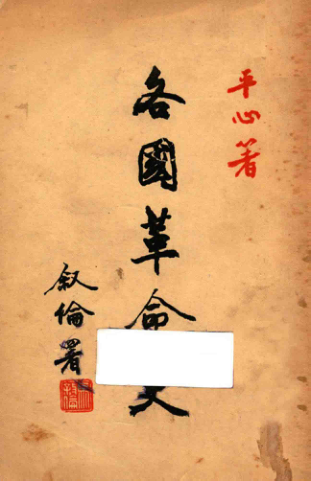 平心著
各國革命
叙倫署